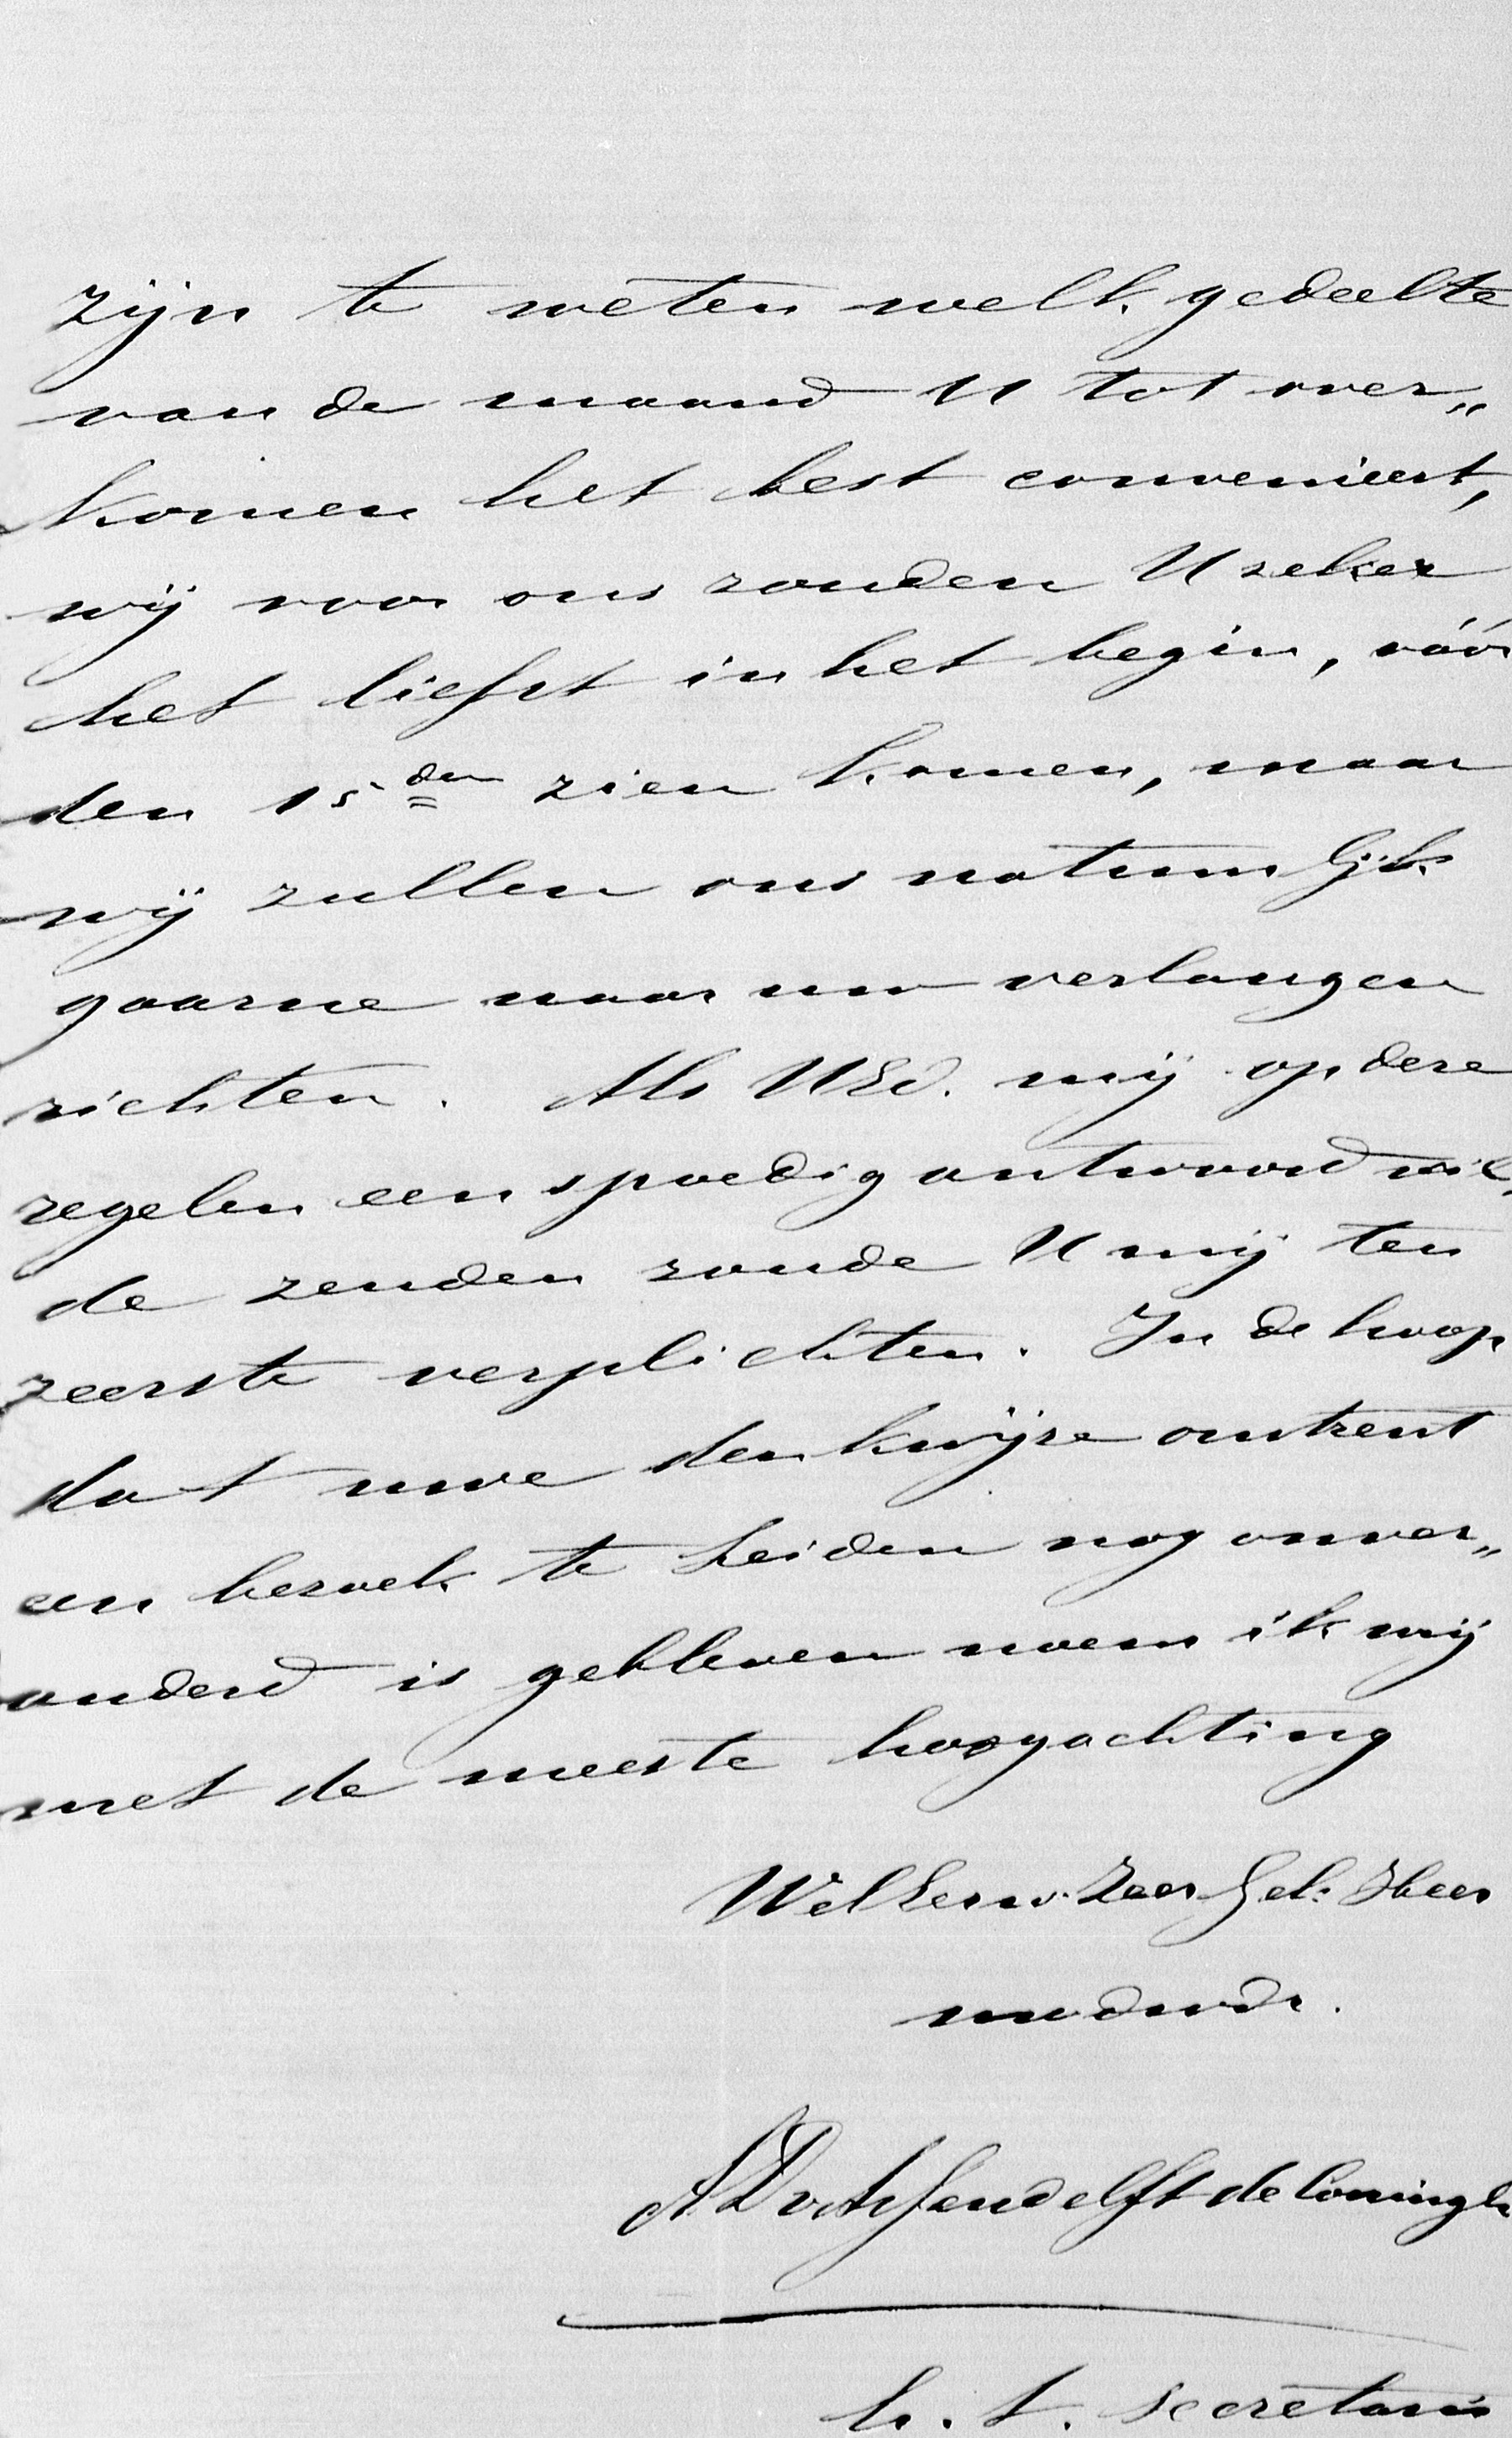 zijn te weten welk gedeelte
van de maand U tot over„
komen het best convenieert,
wij voor ons zouden U zeker
het liefst in het begin, vóór
den 15den zien komen, maar
wij zullen ons natuurlijk
gaarne naar uw verlangen
richten. Als UEd. mij op deze
regelen een spoedig antwoord wil„
de zenden zoude U mij ten
zeerste verplichten. In de hoop
dat uwe denkwijze omtrent
een bezoek te Leiden nog onver„
anderd is gebleven noem ik mij
met de meeste hoogachting
WelEerw. Zeer Gel: Heer
uwdwdr.
A D v Assendelft de Coningh
h. t. Secretaris